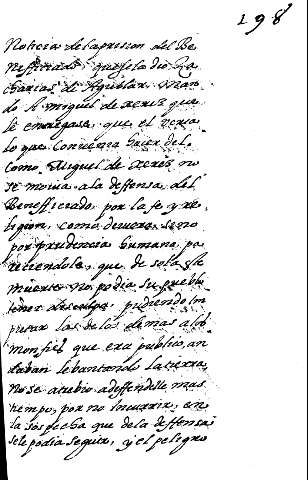 198
Noticia de la prision del Be
nefficiado, que se la dio Za
charias de Aguilar. Man
do A miguel de xerez que
le entregase, que el veria
lo que Convenia hacer del.
Como Miguel de Xerez no
se movia a la deffensa del
Benefficiado por la fe y re
ligion, como devera, sino
por prudencia humana, pa
reciendole, que de sola su
muerte no podia su pueblo
tener desculpa, pudiendo Im
putar las de los demas a los
monfies que era publico, an
daban lebantando la tierra,
No se atrebio a deffendelle mas
tiempo, por no Incurrir, en
la sospecha que de la deffensa
se le podia seguir, y el peligro